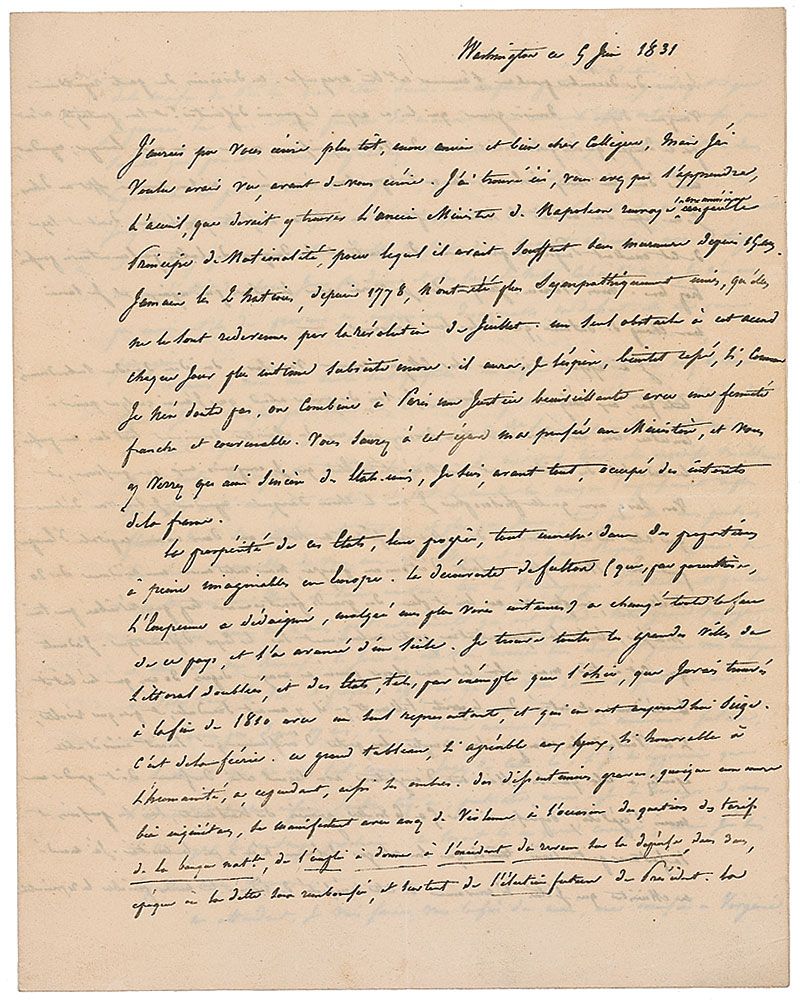 Washington ce 5 Juin 1831
J'aurais pu vous écrire plus tôt, mon ancien et bien cher Collègue, Mais J'ai
Voulu avoir vu, avant de vous écrire. J'ai trouvé ici, vous avez pu l'apprendre,
L'accueil, que devait y trouver L'ancien Ministre de Napoleon
Principe de Nationalité, pour lequel il avait souffert sans murmurer depuis 15 ans.
Jamais les 2 Nations, depuis 1778, N'ont été plus Sympathiquement unies, qu'elles
ne le sont redevenues par la révolution de Juillet. un seul obstacle à cet accord
chaque Jour plus intime subsiste encore. il aura, Je l'espère, bientôt cessé, Si, Comme
Je n'en doute pas, on Combine à Paris une Justice bienveillante avec une fermeté
franche et convenable. Vous Saurez à cet égard ma pensée au Ministère, et Vous
y Verrez qu'ami Sincère des Etats-unis, Je suis, avant tout, occupé des interets
de la france.
La prospérité de ces Etats, leur progrès, tout marche dans des proportions
à peine imaginables en Europe. La découverte de fulton (que, par parenthèse,
L'Empereur a dédaigné, malgré mes plus vives instances) a changé toute la face
de ce pays, et l'a avancé d'un Siècle. Je trouve toutes les grandes Villes du
Littoral doublées, et des Etats, tels, par exemple que l'ohio, que J'avais trouvés
à la fin de 1810 avec un seul representant, et qui en ont aujourdhui Seize.
C'est de la féerie. ce grand tableau, Si agréable aux yeux, Si honorable à
L'humanité, a, cependant, aussi les ombres. des dissentimens graves, quoique encore
bien, se manifestent avec assez de Violence à l'occasion des questions des tarifs
de la banque natle, de l'emploi à donner à l'excédent du revenu sur la dépense dans
époque où la dette sera remboursée, et surtout de l'élection future du Président. La